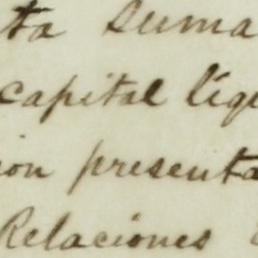 ta suma
capital líqu
ion presenta
Relaciones